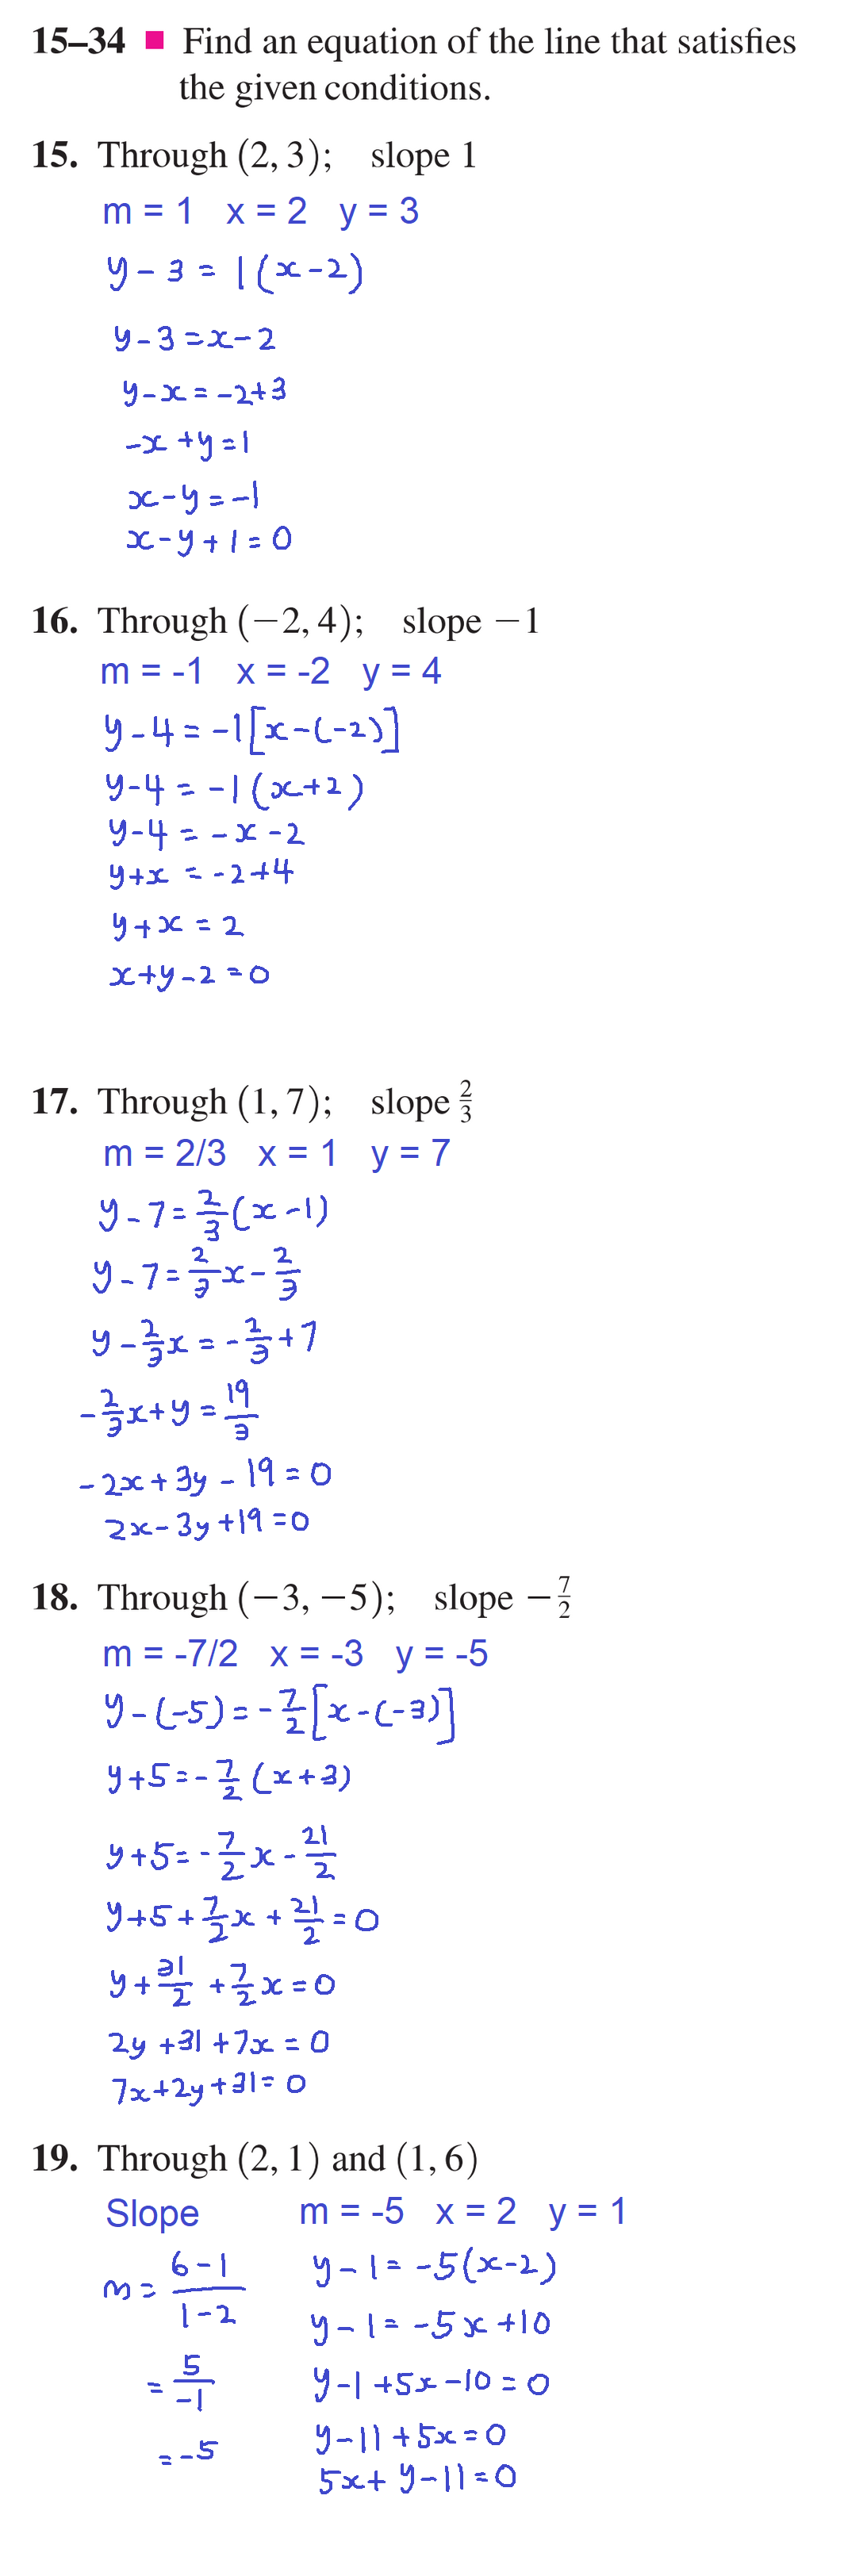 15–34 ■ Find an equation of the line that satisfies
the given conditions.
15. Through (2, 3); slope 1
m = 1 x = 2 y = 3
y - 3 = 1(x - 2)
y - 3 = x - 2
y - x = -2 + 3
-x + y = 1
x - y = -1
x - y + 1 = 0
16. Through (−2, 4); slope −1
m = -1 x = -2 y = 4
y - 4 = -1[x - (-2)]
y - 4 = -1(x + 2)
y - 4 = -x - 2
y + x = -2 + 4
y + x = 2
x + y - 2 = 0
17. Through (1, 7); slope 2/3
m = 2/3 x = 1 y = 7
y - 7 = 2/3(x - 1)
y - 7 = 2/3x - 2/3
y - 2/3x = -2/3 + 7
-2/3x + y = 19/3
-2x + 3y - 19 = 0
2x - 3y + 19 = 0
18. Through (−3, −5); slope −7/2
m = -7/2 x = -3 y = -5
y - (-5) = -7/2[x - (-3)]
y + 5 = -7/2(x + 3)
y + 5 = -7/2x - 21/2
y + 5 + 7/2x + 21/2 = 0
y + 31/2 + 7/2x = 0
2y + 31 + 7x = 0
7x + 2y + 31 = 0
19. Through (2, 1) and (1, 6)
Slope
m = (6 - 1)/(1 - 2)
= 5/-1
= -5
m = -5 x = 2 y = 1
y - 1 = -5(x - 2)
y - 1 = -5x + 10
y - 1 + 5x - 10 = 0
y - 11 + 5x = 0
5x + y - 11 = 0